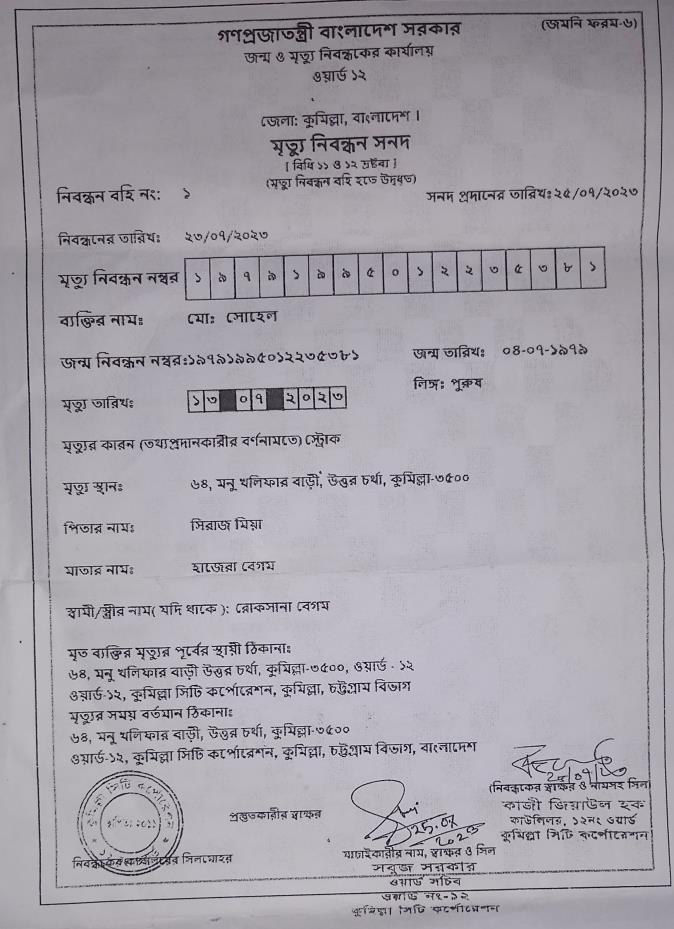 গণপ্রজাতন্ত্রী বাংলাদেশ সরকার
(জমনি ফরম-৬)
জন্ম ও মৃত্যু নিবন্ধকের কার্যালয়
ওয়ার্ড ১২
জেলা: কুমিল্লা, বাংলাদেশ।
মৃত্যু নিবন্ধন সনদ
[ বিধি ১১ ও ১২ দ্রষ্টব্য ]
(মৃত্যু নিবন্ধন বহি হতে উদ্ধৃত)
নিবন্ধন বহি নং: ১
সনদ প্রদানের তারিখ: ২৫/০৭/২০২৩
নিবন্ধনের তারিখ: ২৩/০৭/২০২৩
মৃত্যু নিবন্ধন নম্বর ১ ৯ ৭ ৯ ১ ৯ ৯ ৫ ০ ১ ২ ২ ৩ ৫ ৩ ৮ ১
ব্যক্তির নাম: মো: সোহেল
জন্ম নিবন্ধন নম্বর:১৯৭৯১৯৯৫০১২২৩৫৩৮১ জন্ম তারিখ: ০৪-০৭-১৯৭৯
লিঙ্গ: পুরুষ
মৃত্যু তারিখ: ১৩ ০৭ ২০২৩
মৃত্যুর কারন (তথ্যপ্রদানকারীর বর্ণনামতে) স্ট্রোক
মৃত্যু স্থান: ৬৪, মনু খলিফার বাড়ী, উত্তর চর্থা, কুমিল্লা-৩৫০০
পিতার নাম: সিরাজ মিয়া
মাতার নাম: হাজেরা বেগম
স্বামী/স্ত্রীর নাম( যদি থাকে ): রোকসানা বেগম
মৃত ব্যক্তির মৃত্যুর পূর্বের স্থায়ী ঠিকানা:
৬৪, মনু খলিফার বাড়ী উত্তর চর্থা, কুমিল্লা-৩৫০০, ওয়ার্ড - ১২
ওয়ার্ড-১২, কুমিল্লা সিটি কর্পোরেশন, কুমিল্লা, চট্টগ্রাম বিভাগ
মৃত্যুর সময় বর্তমান ঠিকানা:
৬৪, মনু খলিফার বাড়ী, উত্তর চর্থা, কুমিল্লা-৩৫০০
ওয়ার্ড-১২, কুমিল্লা সিটি কর্পোরেশন, কুমিল্লা, চট্টগ্রাম বিভাগ, বাংলাদেশ
(নিবন্ধকের স্বাক্ষর ও নামসহ সিল)
কাজী জিয়াউল হক
কাউন্সিলর, ১২নং ওয়ার্ড
কুমিল্লা সিটি কর্পোরেশন
প্রস্তুতকারীর স্বাক্ষর
25.07
2023
যাচাইকারীর নাম, স্বাক্ষর ও সিল
সবুজ সরকার
ওয়ার্ড সচিব
ওয়ার্ড নং-১২
কুমিল্লা সিটি কর্পোরেশন
কুমিল্লা সিটি কর্পোরেশন
স্থাপিত ২০১১
নিবন্ধকের কার্যালয়ের সিলমোহর